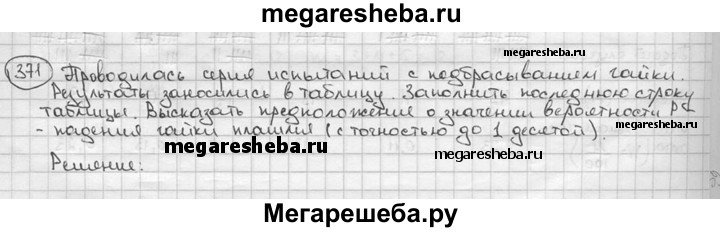 megaresheba.ru
371 Проводилась серия испытаний с подбрасыванием гайки.
megaresheba.ru
Результаты заносились в таблицу. Заполнить последнюю строку
таблицы. Высказать предположение о значении вероятности P
- падения гайки плашмя (с точностью до 1 десятой).
megaresheba.ru
megaresheba.ru
Решение:
Мегарешеба.ру